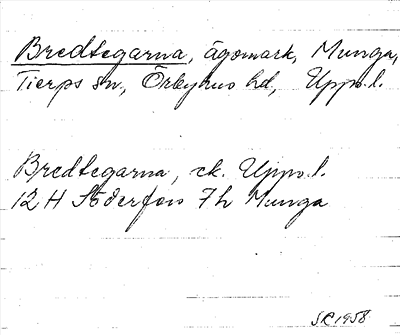 Bredtegarna, ägomark, Munga,
Tierps sn., Örbyhus hd, Upps.l.
Bredtegarna, ek. Upps.l.
12 H Söderfors 7h Munga
SR 1958